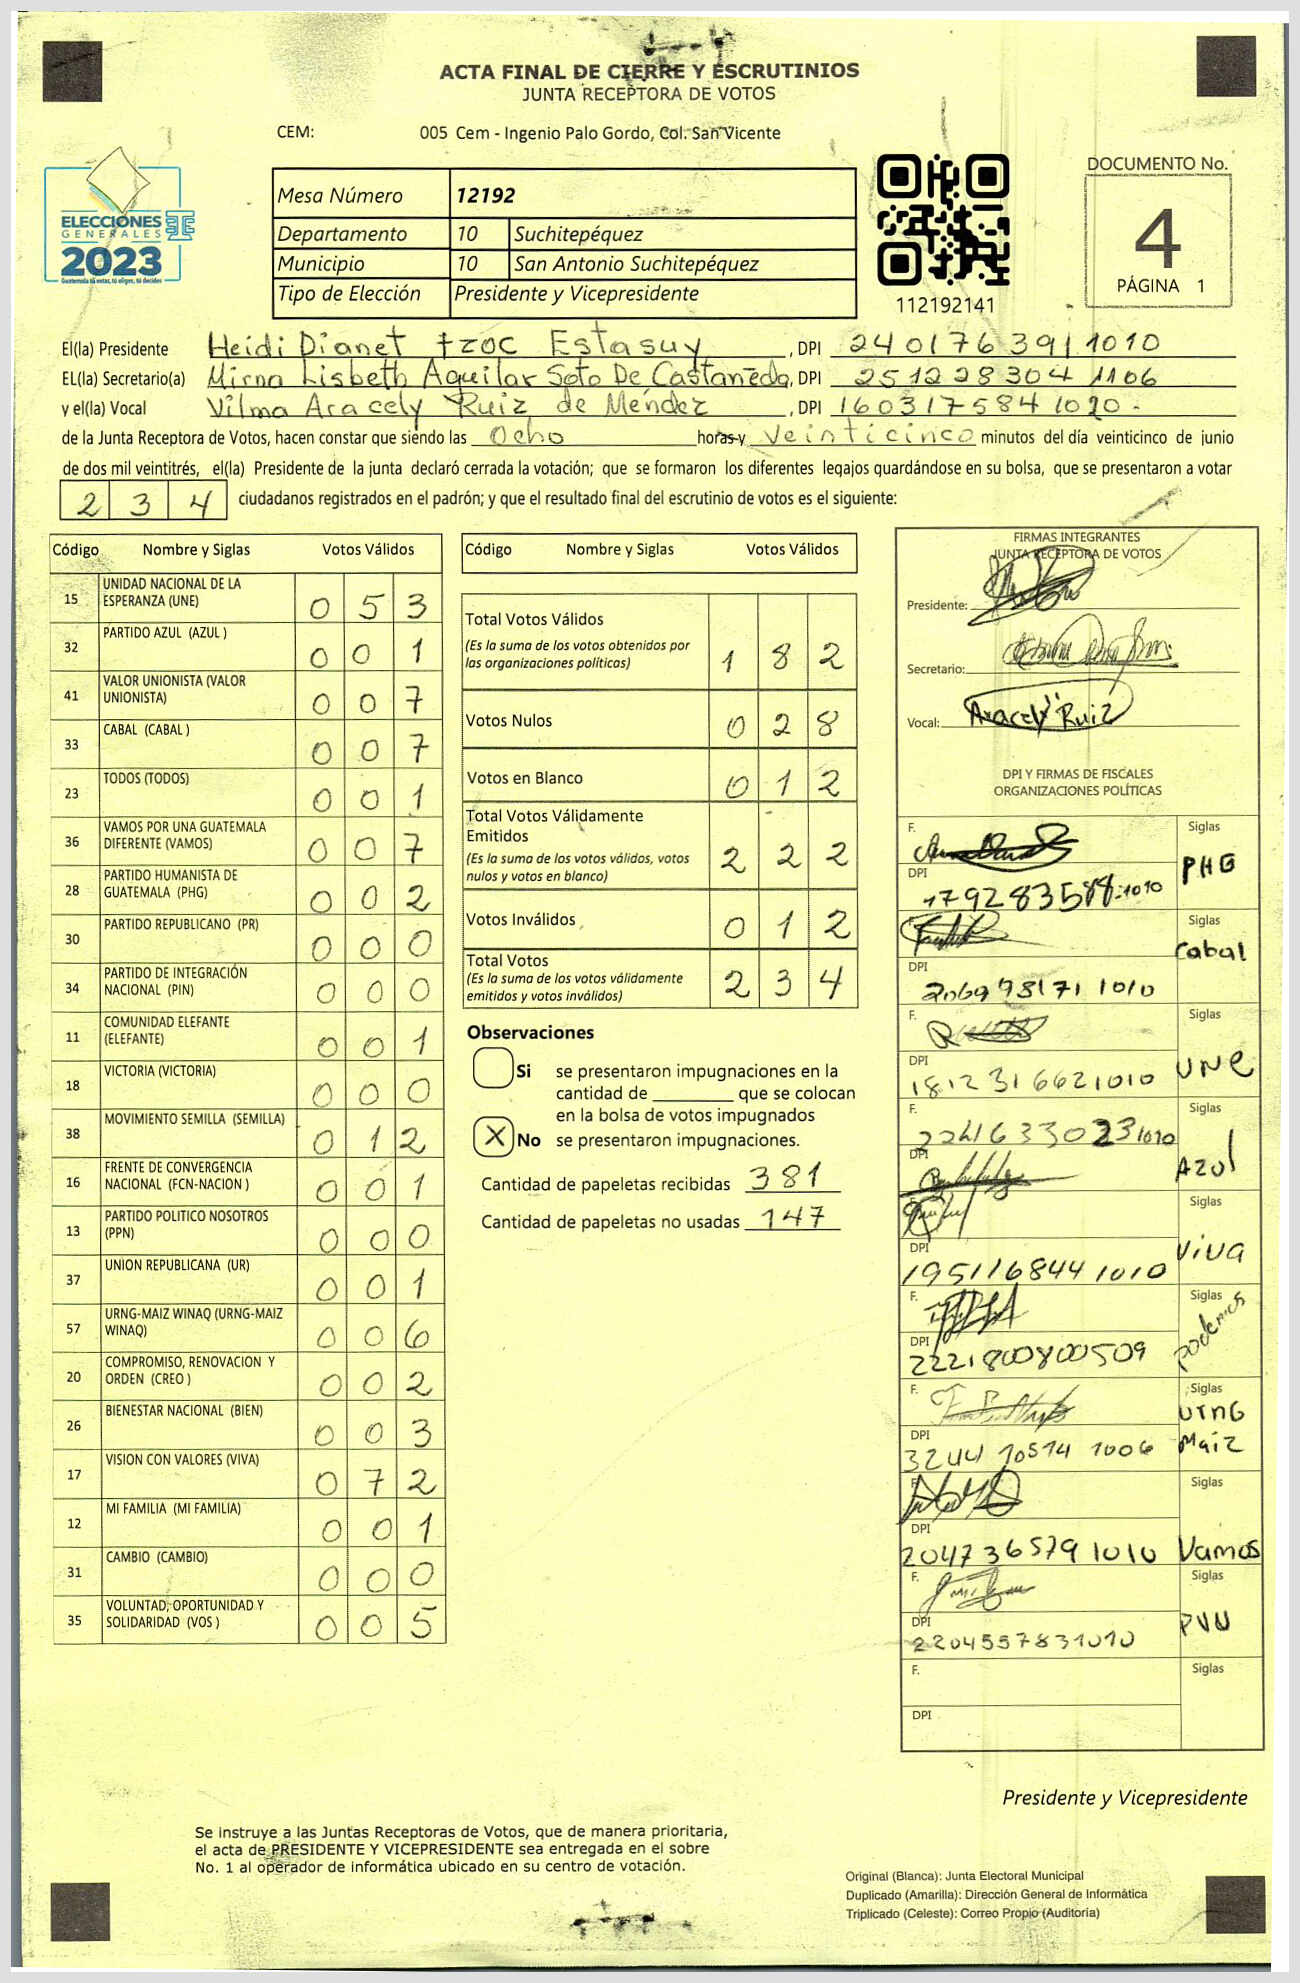 ACTA FINAL DE CIERRE Y ESCRUTINIOS
JUNTA RECEPTORA DE VOTOS
CEM: 005 Cem - Ingenio Palo Gordo, Col. San Vicente
ELECCIONES
GENERALES
2023
Guatemala tú votas, tú eliges, tú decides
Mesa Número 12192
Departamento 10 Suchitepéquez
Municipio 10 San Antonio Suchitepéquez
Tipo de Elección Presidente y Vicepresidente
112192141
DOCUMENTO No.
4
PÁGINA 1
El(la) Presidente Heidi Dianet tzoc Estasuy, DPI 2401763911010
EL(la) Secretario(a) Mirna Lisbeth Aguilar Soto De Castañeda, DPI 2512283041106
y el(la) Vocal Vilma Aracely Ruiz de Méndez, DPI 1603175841010.
de la Junta Receptora de Votos, hacen constar que siendo las Ocho horas y veinticinco minutos del día veinticinco de junio
de dos mil veintitrés, el(la) Presidente de la junta declaró cerrada la votación; que se formaron los diferentes legajos quardándose en su bolsa, que se presentaron a votar
2 3 4 ciudadanos registrados en el padrón; y que el resultado final del escrutinio de votos es el siguiente:
Código Nombre y Siglas Votos Válidos
15 UNIDAD NACIONAL DE LA ESPERANZA (UNE) 0 5 3
32 PARTIDO AZUL (AZUL ) 0 0 1
41 VALOR UNIONISTA (VALOR UNIONISTA) 0 0 7
33 CABAL (CABAL ) 0 0 7
23 TODOS (TODOS) 0 0 1
36 VAMOS POR UNA GUATEMALA DIFERENTE (VAMOS) 0 0 7
28 PARTIDO HUMANISTA DE GUATEMALA (PHG) 0 0 2
30 PARTIDO REPUBLICANO (PR) 0 0 0
34 PARTIDO DE INTEGRACIÓN NACIONAL (PIN) 0 0 0
11 COMUNIDAD ELEFANTE (ELEFANTE) 0 0 1
18 VICTORIA (VICTORIA) 0 0 0
38 MOVIMIENTO SEMILLA (SEMILLA) 0 1 2
16 FRENTE DE CONVERGENCIA NACIONAL (FCN-NACION ) 0 0 1
13 PARTIDO POLITICO NOSOTROS (PPN) 0 0 0
37 UNION REPUBLICANA (UR) 0 0 1
57 URNG-MAIZ WINAQ (URNG-MAIZ WINAQ) 0 0 6
20 COMPROMISO, RENOVACION Y ORDEN (CREO ) 0 0 2
26 BIENESTAR NACIONAL (BIEN) 0 0 3
17 VISION CON VALORES (VIVA) 0 7 2
12 MI FAMILIA (MI FAMILIA) 0 0 1
31 CAMBIO (CAMBIO) 0 0 0
35 VOLUNTAD, OPORTUNIDAD Y SOLIDARIDAD (VOS ) 0 0 5
Código Nombre y Siglas Votos Válidos
Total Votos Válidos
(Es la suma de los votos obtenidos por
las organizaciones políticas) 1 8 2
Votos Nulos 0 2 8
Votos en Blanco 0 1 2
Total Votos Válidamente
Emitidos
(Es la suma de los votos válidos, votos
nulos y votos en blanco) 2 2 2
Votos Inválidos 0 1 2
Total Votos
(Es la suma de los votos válidamente
emitidos y votos inválidos) 2 3 4
Observaciones
Si se presentaron impugnaciones en la
cantidad de ________ que se colocan
en la bolsa de votos impugnados
X No se presentaron impugnaciones.
Cantidad de papeletas recibidas 381
Cantidad de papeletas no usadas 147
FIRMAS INTEGRANTES
JUNTA RECEPTORA DE VOTOS
Presidente:
Secretario:
Vocal: Aracely Ruiz
DPI Y FIRMAS DE FISCALES
ORGANIZACIONES POLÍTICAS
F. Siglas PHG
DPI 1792835881010
F. Siglas Cabal
DPI 2069981711010
F. Siglas UNE
DPI 1812316621010
F. 2241633023 1010 Siglas Azul
DPI
F. Siglas Viva
DPI 1951168441010
F. Siglas podemos
DPI 2221800800509
F. Siglas URNG Maiz
DPI 3244105141006
F. Siglas Vamos
DPI 2047365791010
F. Siglas PUU
DPI 2204557831010
F. Siglas
DPI
Presidente y Vicepresidente
Se instruye a las Juntas Receptoras de Votos, que de manera prioritaria,
el acta de PRESIDENTE Y VICEPRESIDENTE sea entregada en el sobre
No. 1 al operador de informática ubicado en su centro de votación.
Original (Blanca): Junta Electoral Municipal
Duplicado (Amarilla): Dirección General de Informática
Triplicado (Celeste): Correo Propio (Auditoría)